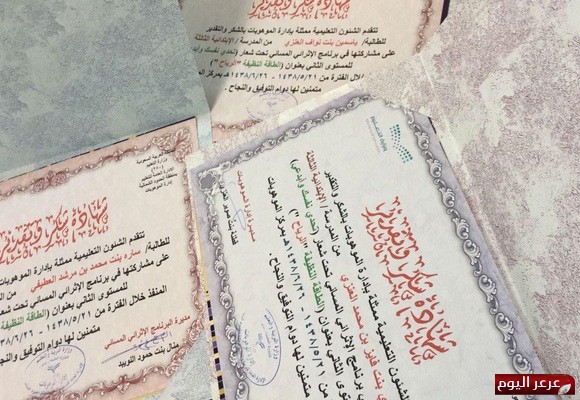 شهادة شكر وتقدير
تتقدم الشئون التعليمية ممثلة بإدارة الموهوبات بالشكر والتقدير
للطالبة/ ياسمين بنت نواف العنزي من المدرسة/ الابتدائية الثالثة
على مشاركتها في برنامج الإثرائي المسائي تحت شعار (تحدي نفسك وأبدعي)
للمستوى الثاني بعنوان (الطاقة النظيفة "الرياح")
خلال الفترة من ١٤٣٨/٥/٢١ - ١٤٣٨/٦/٢٦هـ بمركز
متمنين لها دوام التوفيق والنجاح.
المملكة العربية السعودية
وزارة التعليم
(٢٨٠)
الإدارة العامة للتعليم
بمنطقة الحدود الشمالية
إدارة الموهوبات
شهادة شكر وتقدير
تتقدم الشئون التعليمية ممثلة بإدارة الموهوبات
للطالبة/ ساره بنت محمد بن مرشد العطيفي من
على مشاركتها في برنامج الإثرائي المسائي تحت شعار
للمستوى الثاني بعنوان (الطاقة النظيفة
المنفذ خلال الفترة من ١٤٣٨/٥/٢١ - ١٤٣٨/٦/٢٦
متمنين لها دوام التوفيق والنجاح
مديرة البرنامج الإثرائي المسائي
منال بنت حمود النويبد
وزارة التعليم
شهادة شكر وتقدير
الشئون التعليمية ممثلة بإدارة الموهوبات بالشكر والتقدير
بنت فايز بن محمد العنزي من المدرسة/ الابتدائية الثالثة
برنامج الإثرائي المسائي تحت شعار (تحدي نفسك وأبدعي)
الثاني بعنوان (الطاقة النظيفة "الرياح")
من ١٤٣٨/٥/٢١ - ١٤٣٨/٦/٢٦هـ بمركز الموهوبات
لها دوام التوفيق والنجاح.
مديرة إدارة الموهوبات
عرعر اليوم